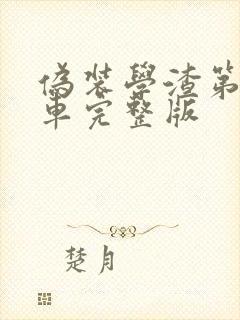 偽裝學渣第
車完整版
楚月